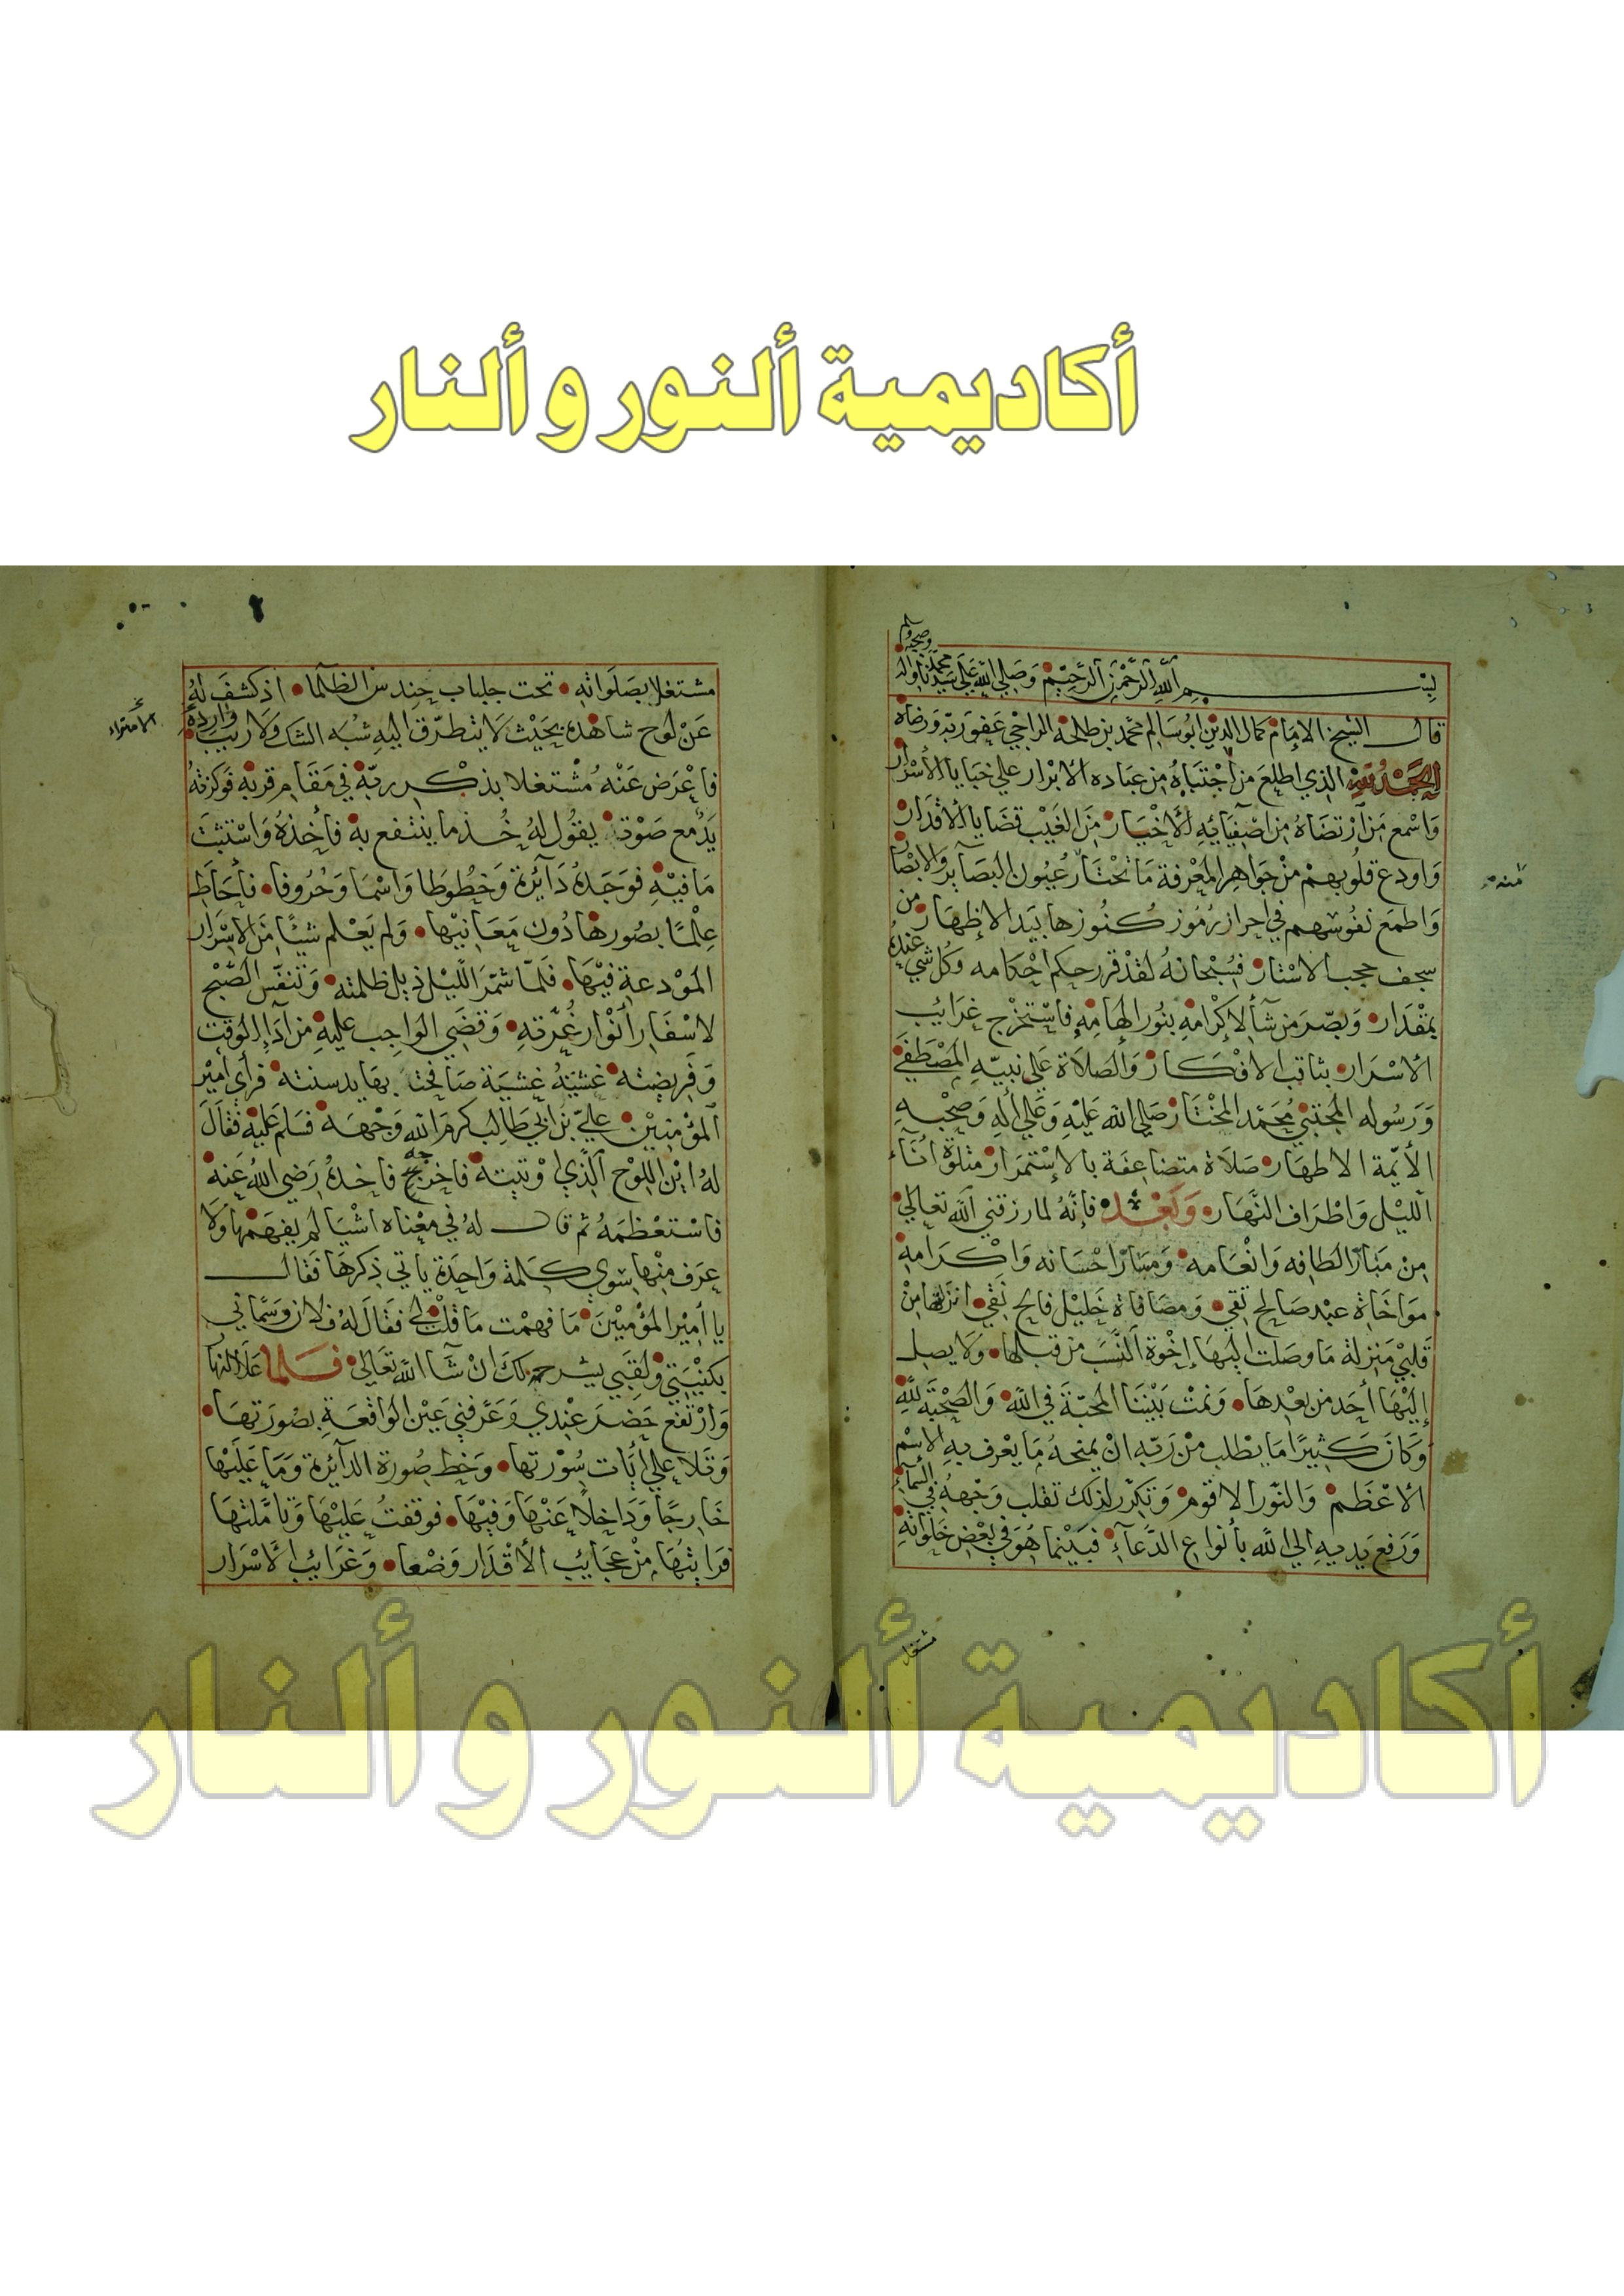 أكاديمية ألنور و ألنار
وصحبه وسلم
بسم الله الرحمن الرحيم وصلى الله على سيدنا محمد واله
قال الشيخ الامام كمال الدين ابو سالم محمد بن طلحة الراجي عفو ربه ورضاه
الحمد لله الذي اطلع من اجتباه من عباده الابرار علي خبايا الأسرار
وَاسْمع مَن ارتضاه من اصفيائه الأخيار من الغيب قضايا الأقدار
وَاودع قلوبهم من جواهر المعرفة ما تختار عيون البصآئر والابصار
وَاطمع نفوسهم في احراز رموز كنوزها بيد الاظهار من
سجف حجب الاستار فسبحانه لقد قرر حكم احكامه وكل شي عنده
بمقدار وَبصّر من شآء لإكرامه بنور إلهامه فاستخرج غرايب
الأسرار بثاقب الافكار وَالصلاة علي نبيّه المصطفي
وَرَسوله المجتبي محمّد المختار صلي الله عليه وعلي أله وصحبه
الأئِمّة الاطهار صلاة متضاعفة بالإستمرار متلوة اناء
الليل واطراف النهار وَبَعْد فإنّه لما رزقني الله تعالي
من مَبَآرّ الطافه وَانعامه وَمسَارّ احسانه وَاكرامه
مواخاة عبْد صَالح تقي وَمصَافاة خليل فالح نقي انزلتها من
قلبي منزلة ما وصلت اليها إخْوة النسَب من قبلها وَلا يصل
إليها أحد من بعْدها وَنمت بيننا المحبّة في الله وَالصّحبَة لله
وكانَ كثيرًا مَا يطلب من رَبّه انْ يمنحهُ مَا يعْرف به الاسْم
الأعْظم وَالنّور الاقوم وَتكرّر لذلك تقلب وَجهه في السماء
وَرَفع يديه الي الله بأنواع الدّعآء فبيْنما هُوَ في بعْض خلواته
امنه
مشتغل
مشتغلا بصَلوَاته تحت جلباب حِندس الظلما اذ كشف لهُ
عَنْ لوح شاهدهُ بحيْث لا يتطرّق اليه شبُه الشك ولا ريب وارده
الامتراء
فاعْرَض عَنْه مُشْتغلا بذكر ربّه في مَقَام قربه فوكزته
يَدٌ مع صَوْت يقول لهُ خُذ ما ينتفع به فأخذهُ وَاستثبت
مَا فيْه فوَجَدهُ دَآئرة وَخُطُوطا وَاسْما وَحُرُوفا فأحَاط
علمًا بصُورهَا دُون مَعَانيْها وَلم يَعْلم شيئًا من الاسْرَار
المَوْدعة فيْهَا فلمّا شمّرَ اللّيْل ذيل ظلمته وَتنفّس الصّبْح
لاسْفار أنْوار غُرّته وَقضَي الوَاجب عليه من ادآء الوقت
وَفريضته غشيَتهُ غشيَة صَافحت بهَا يد سنته فرأي أمير
المؤمنين علي بن ابي طالب كرم الله وَجْهَهُ فسَلم عَليه فقالَ
لهُ اين اللوْح الّذي اوْتيته فاخرجه فاخذهُ رضي الله عنه
فاسْتعْظمَهُ ثم قال لهُ في مِعْناه اشْيَا لم يفهَمْها وَلا
عرف منْها سوي كلمة واحدة ياتي ذكرها فقال
يا امير المؤمنين مَا فهمْت مَا قلت لي فقالَ لهُ فلان وَسمّاني
بكنيَتي وَلقبي يشرحه لكَ ان شآ الله تعالي فلما علا النهار
وَارْتفع حَضرَ عنْدي وَعَرّفني عَيْن الواقعة بصُورَتهَا
وَتلا علي أيَات سُوْرتها وَخط صُورة الدآئرة وَمَا عَليْها
خَارجًا وَدَاخلا عنْهَا وَفيْهَا فوقفتُ عَليْهَا وَتَأمّلتهَا
فرَايتُهَا منْ عجَايب الأقْدَار وَضْعا وَغرَايب الاسْرَار
أكاديمية ألنور و ألنار